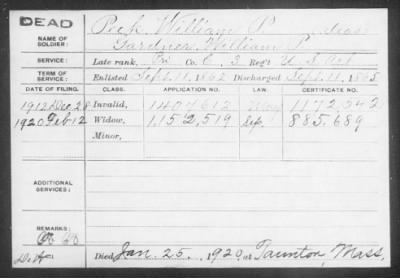 DEAD
NAME OF SOLDIER: Peck, William P. alias
Gardner, William P.
SERVICE: Late rank, Pri Co. E, 3 Reg't U.S. Art
TERM OF SERVICE: Enlisted Sept. 11, 1862 Discharged Sept. 11, 1865
DATE OF FILING. CLASS. APPLICATION NO. LAW. CERTIFICATE NO.
1912 Dec 28 Invalid, 1407612 May 1172542
1920 Feb 12 Widow, 1,152,519 Sep. 885,689
Minor,
ADDITIONAL SERVICES:
REMARKS:
Died Jan. 25, 1920, at Taunton, Mass.